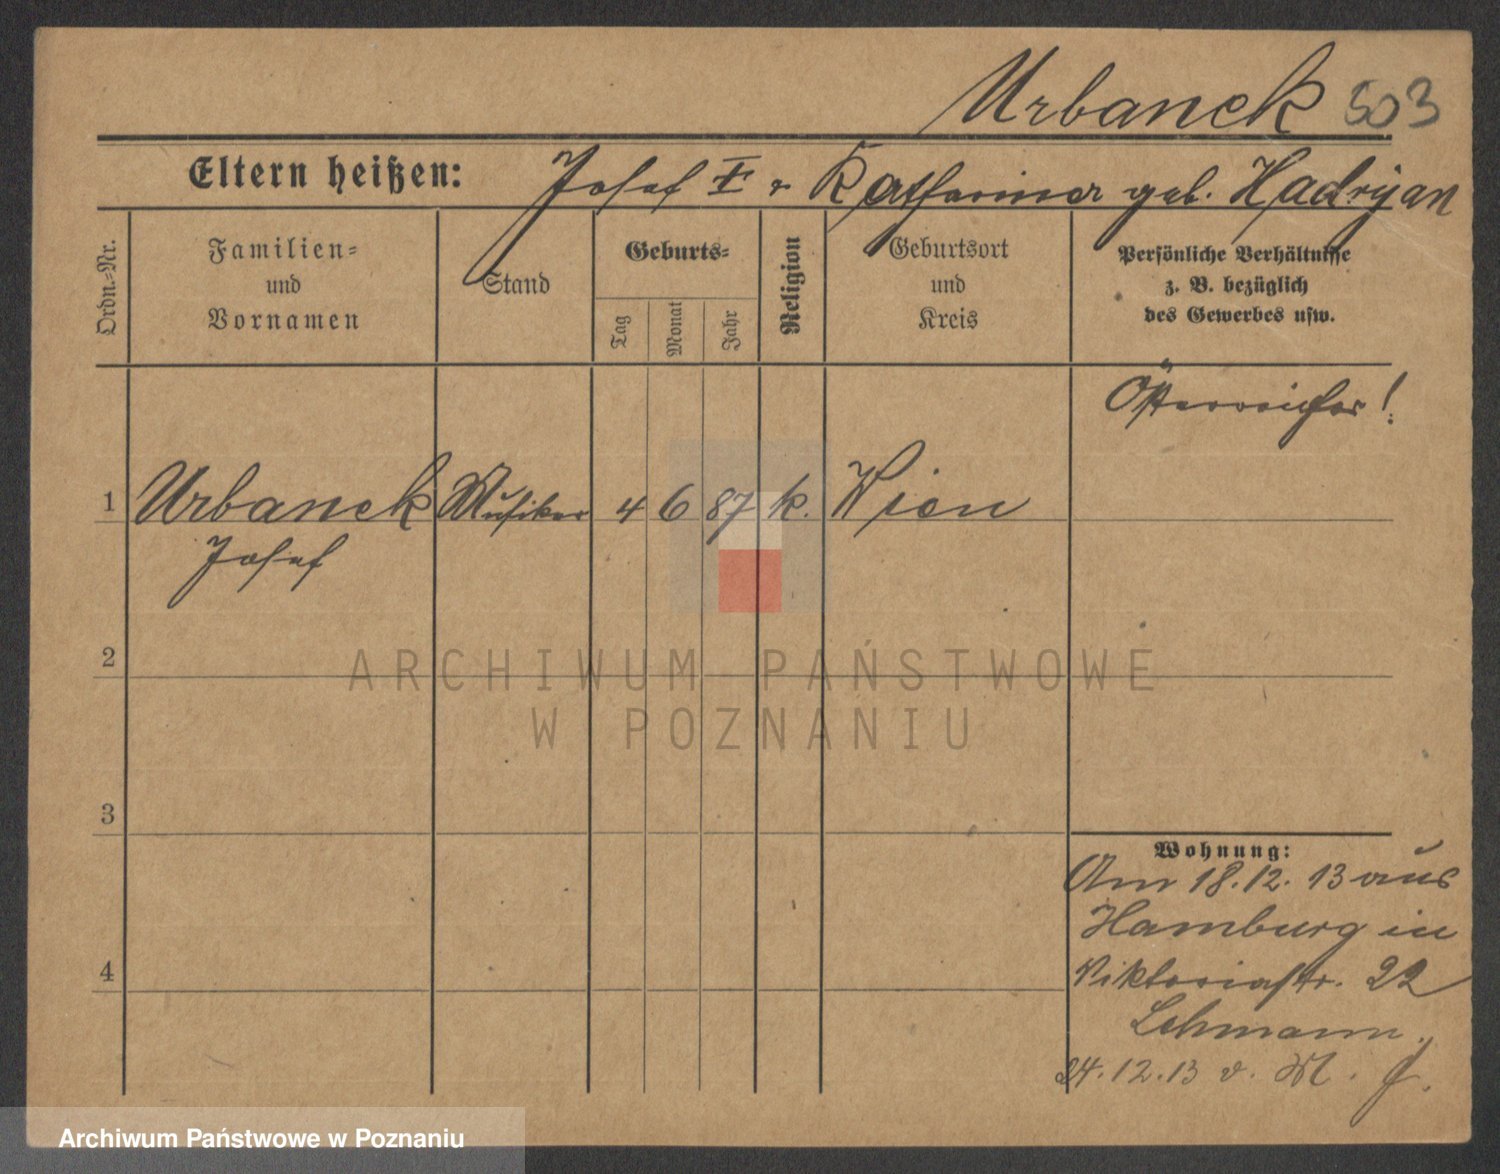 Urbanek 503
Eltern heißen: Josef † u Katharina geb. Hadryan
Ordn.=Nr.
Familien=
und
Vornamen
Stand
Geburts=
Tag
Monat
Jahr
Religion
Geburtsort
und
Kreis
Persönliche Verhältnisse
z. B. bezüglich
des Gewerbes usw.
Österreicher!
1 Urbanek Musiker 4 6 87 k. Wien
Josef
2
3
4
Wohnung:
Am 18.12.13 aus
Hamburg in
Viktoriastr. 22
Lehmann.
24.12.13 v. M.
ARCHIWUM PAŃSTWOWE
W POZNANIU
Archiwum Państwowe w Poznaniu